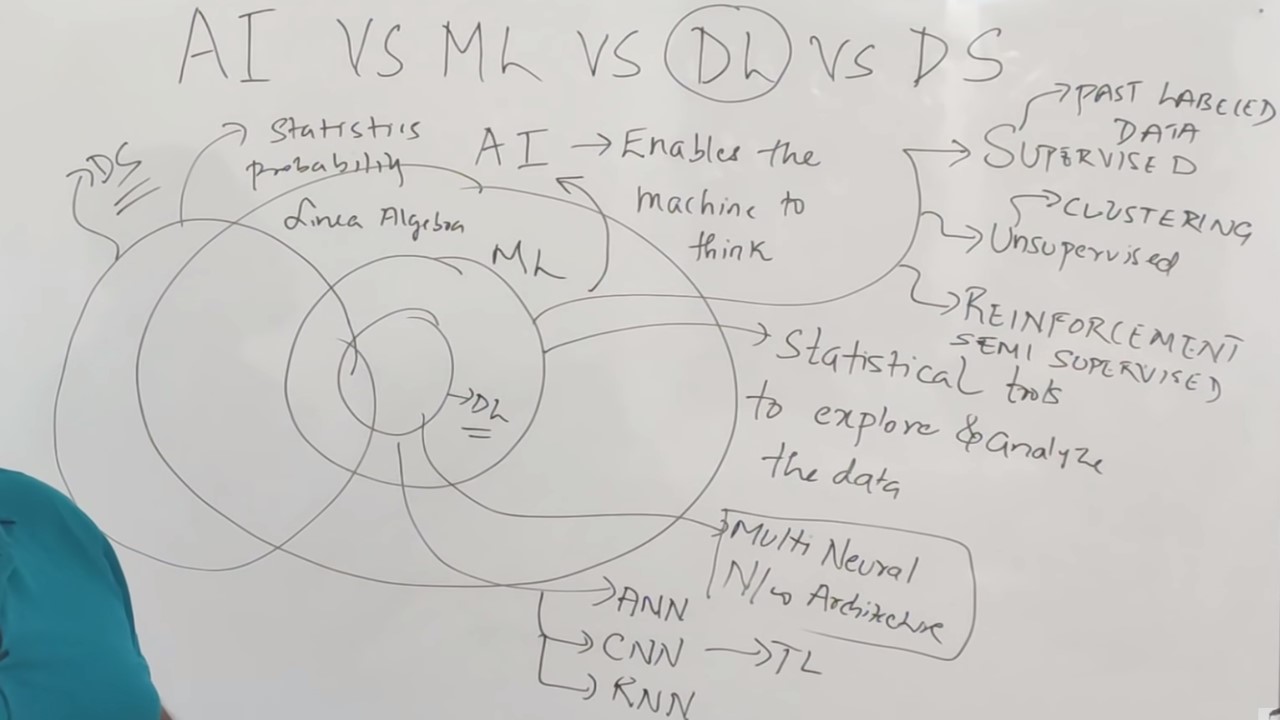 AI VS ML VS DL VS DS
DS
Statistics
probability
Linea Algebra
AI → Enables the
machine to
think
ML
DL
PAST LABELED
DATA
SUPERVISED
CLUSTERING
Unsupervised
REINFORCEMENT
SEMI SUPERVISED
Statistical tools
to explore & analyze
the data
Multi Neural
N/w Architecture
ANN
CNN → TL
RNN